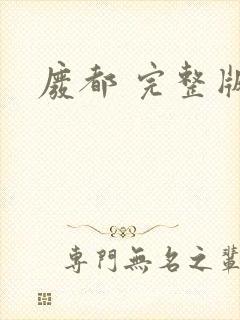 廢都 完整版
專門無名之輩